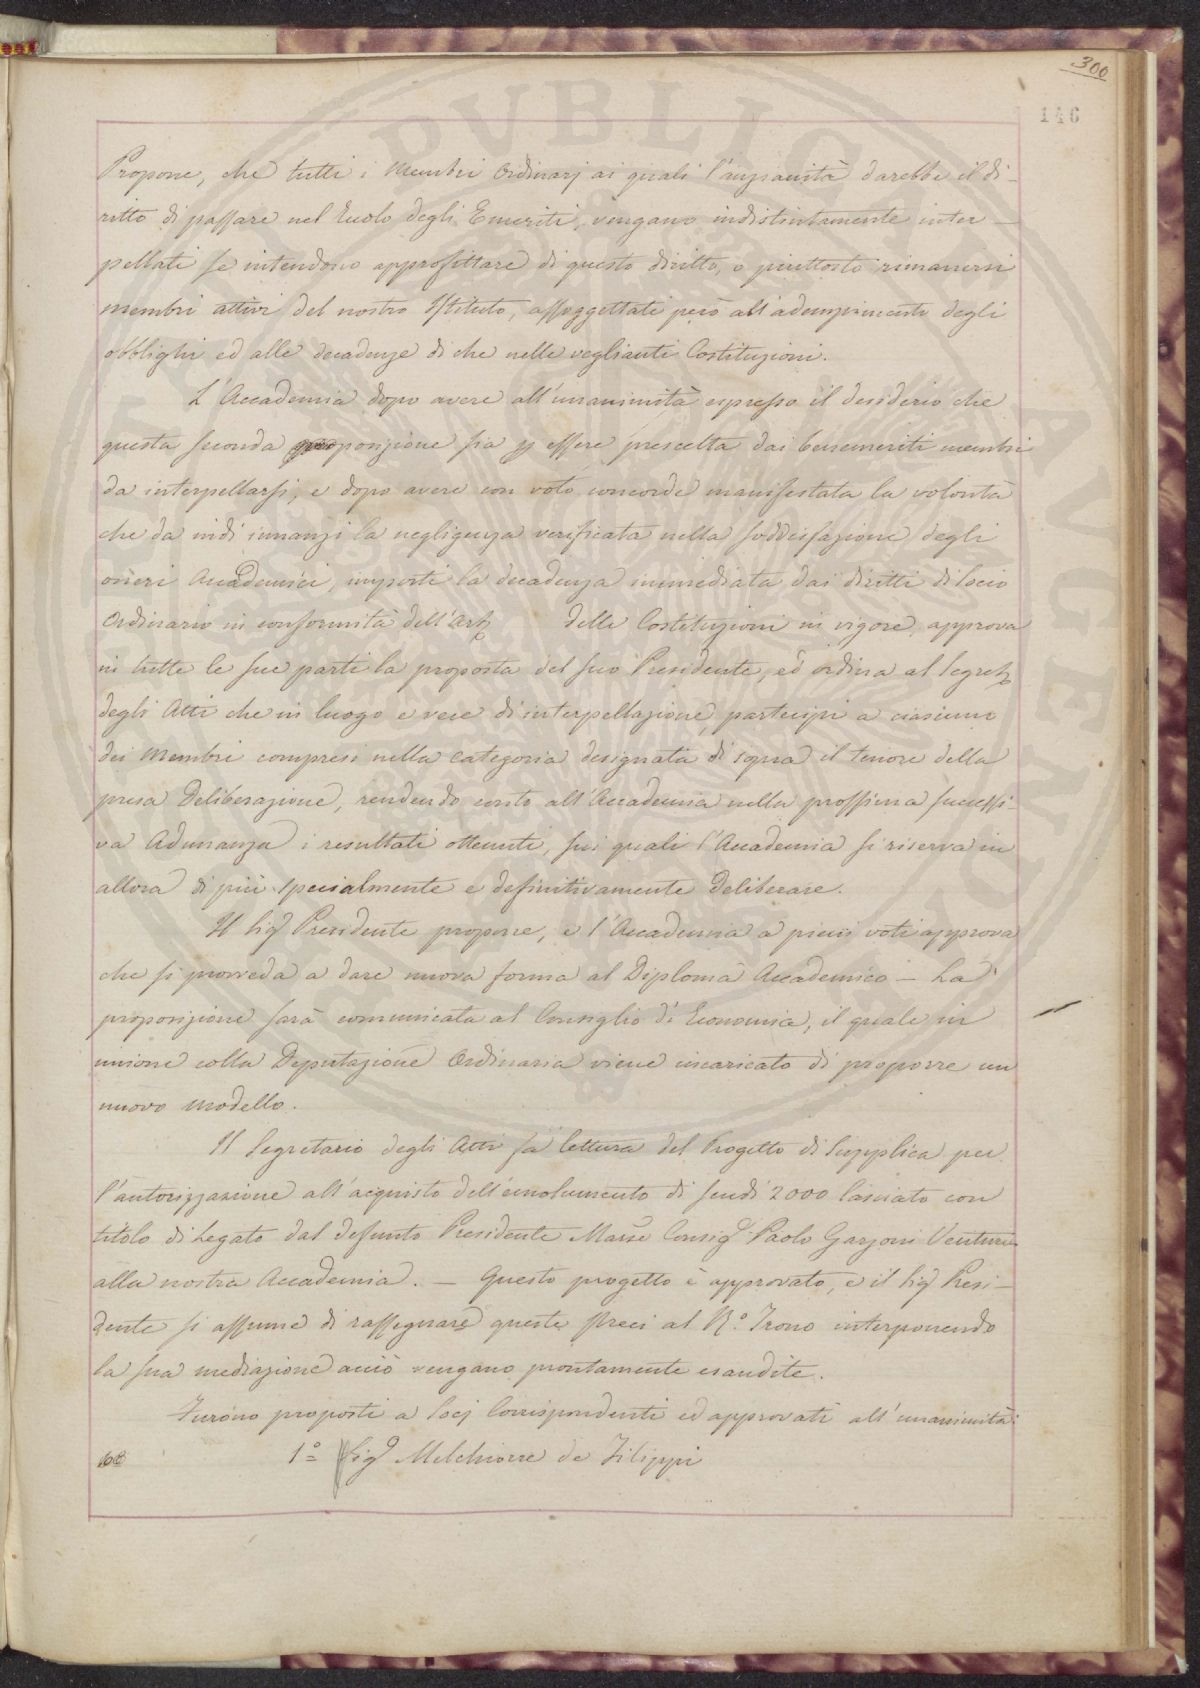 300
146
Propone, che tutti i Membri Ordinarj ai quali l'anzianità darebbe il di-
ritto di passare nel Ruolo degli Emeriti, vengano indistintamente inter-
pellati se intendono approfittare di questo diritto, o piuttosto rimanersi
membri attivi del nostro Istituto, assoggettati però all'adempimento degli
obblighi ed alle decadenze di che nelle veglianti Costituzioni.
L'Accademia dopo avere all'unanimità espresso il desiderio che
questa seconda proposizione sia p essere prescelta dai benemeriti membri
da interpellarsi, e dopo avere con voto concorde manifestata la volontà
che da indi innanzi la negligenza verificata nella soddisfazione degli
oneri Accademici, importi la decadenza immediata dai diritti di Socio
Ordinario in conformità dell'Arto delle Costituzioni in vigore, approva
in tutte le sue parti la proposta del suo Presidente, ed ordina al Segreto
degli Atti che in luogo e vece di interpellazione, partecipi a ciascuno
dei Membri compresi nella categoria designata di sopra il tenore della
presa Deliberazione, rendendo conto all'Accademia nella prossima successi-
va Adunanza i resultati ottenuti, sui quali l'Accademia si riserva in
allora di più specialmente e definitivamente deliberare.
Il Sigr Presidente propone, e l'Accademia a pieni voti approva
che si provveda a dare nuova forma al Diploma Accademico - La
proposizione sarà comunicata al Consiglio di Economia, il quale in
unione colla Deputazione Ordinaria viene incaricato di proporre un
nuovo modello.
Il Segretario degli Atti fà lettura del Progetto di Supplica per
l'autorizzazione all'acquisto dell'emolumento di scudi 2000 lasciato con
titolo di Legato dal defunto Presidente Marse Consigr Paolo Garzoni Venturi
alla nostra Accademia. - Questo progetto è approvato, e il Sigr Presi-
dente si assume di rassegnare queste Preci al R.o Trono interponendo
la sua mediazione acciò vengano prontamente esaudite.
Furono proposti a Socj Corrispondenti ed approvati all'unanimità:
1o Sigr Melchiorre de Filippi